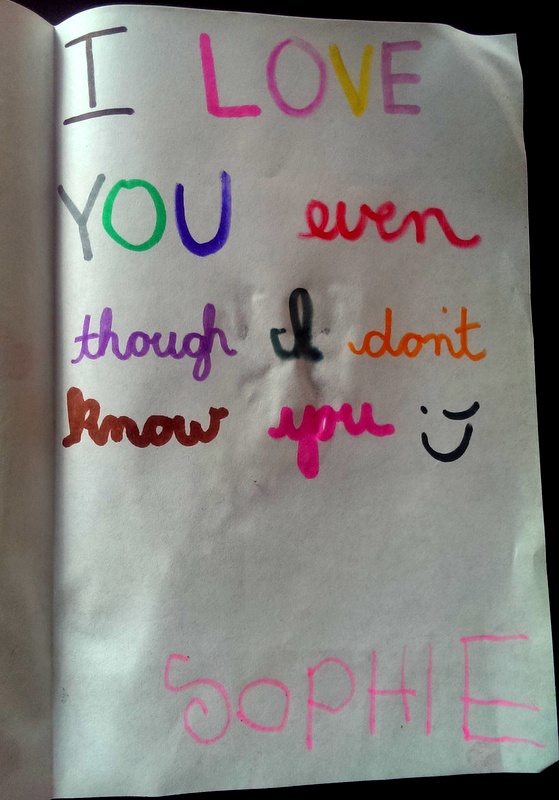 I LOVE
YOU even
though I don't
know you
SOPHIE